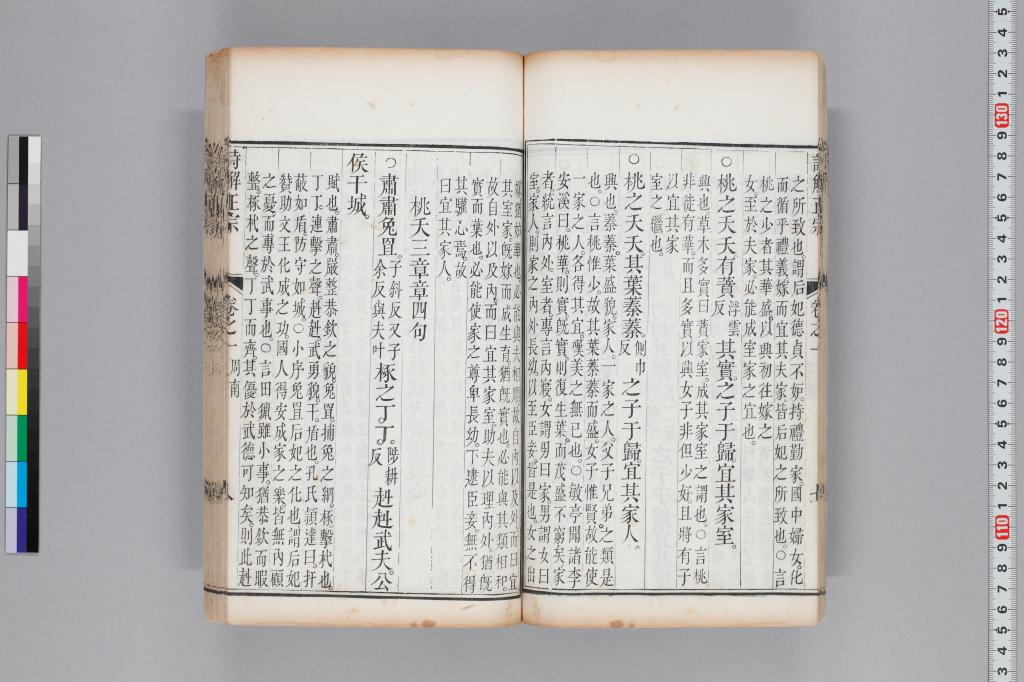 之所致也謂后妃德貞不妬持禮勤家國中婦女化
而循乎禮義嫁而宜其夫家皆后妃之所致也○言
桃之少者其華盛以興初往嫁之
女至於夫家必能成室家之宜也
○桃之夭夭有蕡浮雲反其實之子于歸宜其家室
興也草木多實曰蕡家室成其家室之謂也○言桃
非徒有華而且多實以興女子非但少好且將有子
以宜其家
室之繼也
○桃之夭夭其葉蓁蓁側巾反之子于歸宜其家人
興也蓁蓁葉盛貌家人一家之人父子兄弟之類是
也○言桃惟少故其葉蓁蓁而盛女子惟賢故能使
一家之人各得其宜嘆美之無已也○敬亭聞諸李
安溪曰桃華則實旣實則復生葉而茂盛不窮矣家
者統言內外室者專言內寢女謂男曰家男謂女曰
室家人則一家之內外長幼以至臣妾皆是也女之出
其室家旣嫁而成生育猶旣實也必能與其類相和
故自外以及內而曰宜其家室助夫以理內外猶旣
實而葉也必能使家之尊卑長幼下逮臣妾無不得
其驩心焉故
曰宜其家人
桃夭三章章四句
○肅肅兔罝子斜反又子余反與夫叶椓之丁丁陟耕反赳赳武夫公
侯干城
賦也肅肅嚴整恭欽之貌兔罝捕兔之網椓擊杙也
丁丁連擊之聲赳赳武勇貌干盾也孔氏頴達曰扞
蔽如盾防守如城○小序兔罝后妃之化也謂后妃
贊助文王化成之功國人得安成家之樂皆無內顧
之憂而專於武事也○言田獵雖小事猶恭欽而嚴
整椓杙之聲丁丁而齊其優於武德可知矣則此赳
詩解正宗
卷之一
周南
八